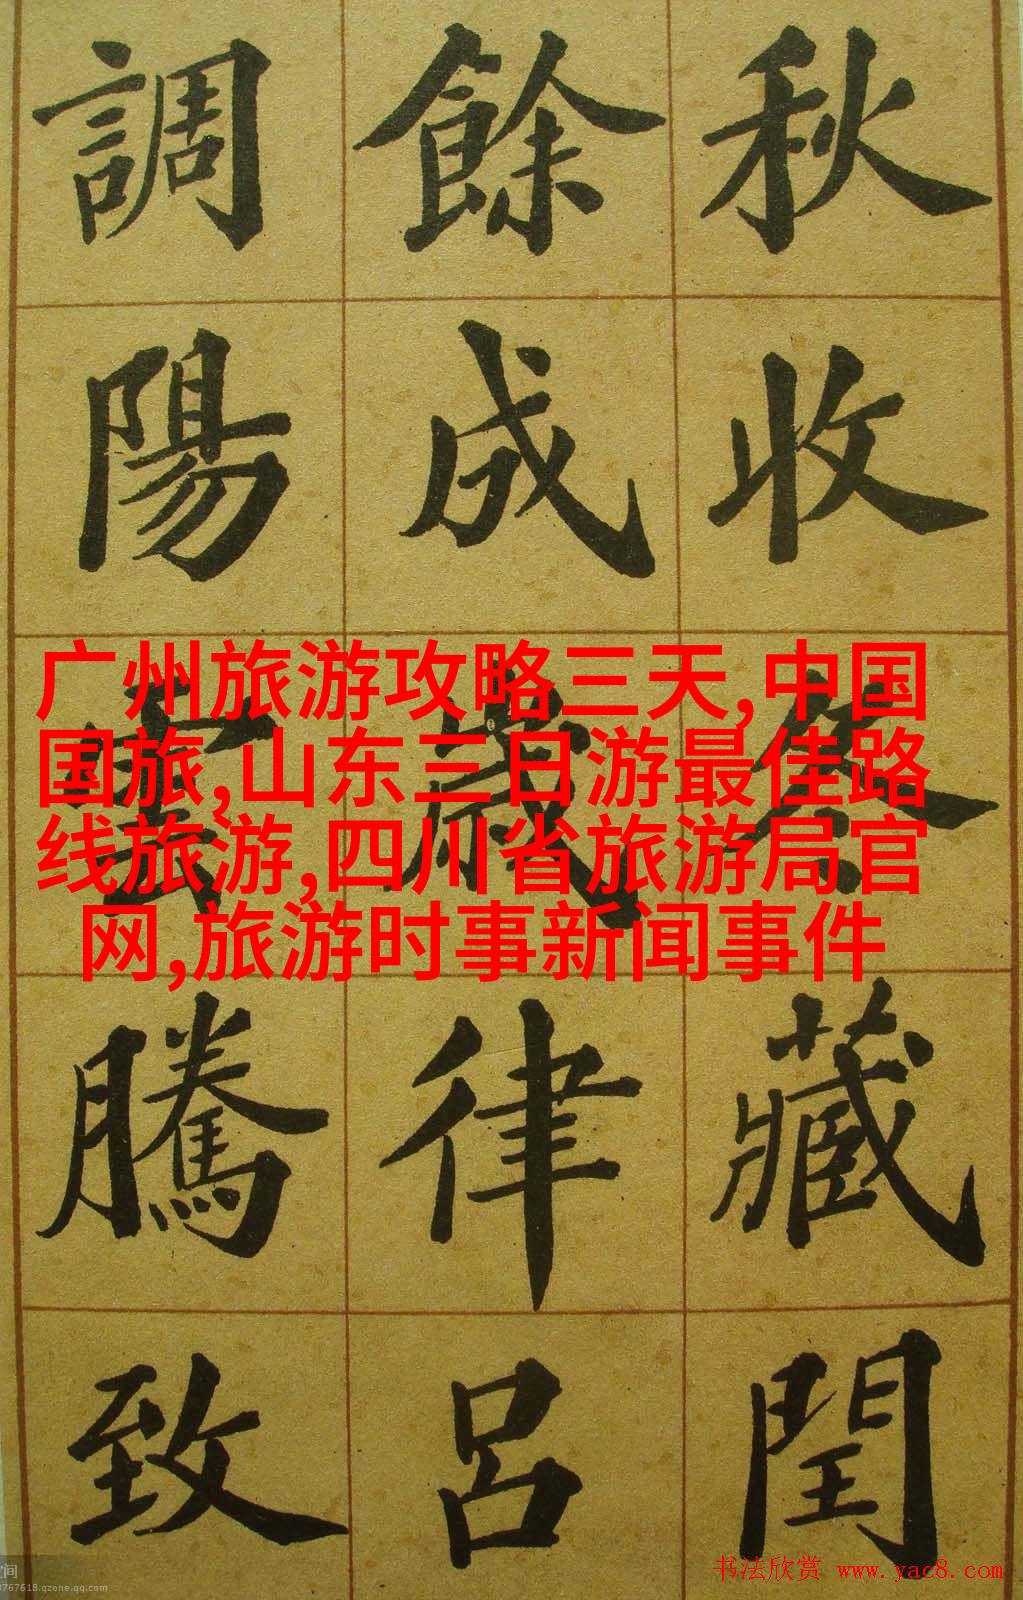 秋收冬藏閏
餘成歲律呂
調陽雲騰致
广州旅游攻略三天,中国
国旅,山东三日游最佳路
线旅游,四川省旅游局官
网,旅游时事新闻事件
书法欣赏 www.yac8.com
空间
3767618.qzone.qq.com